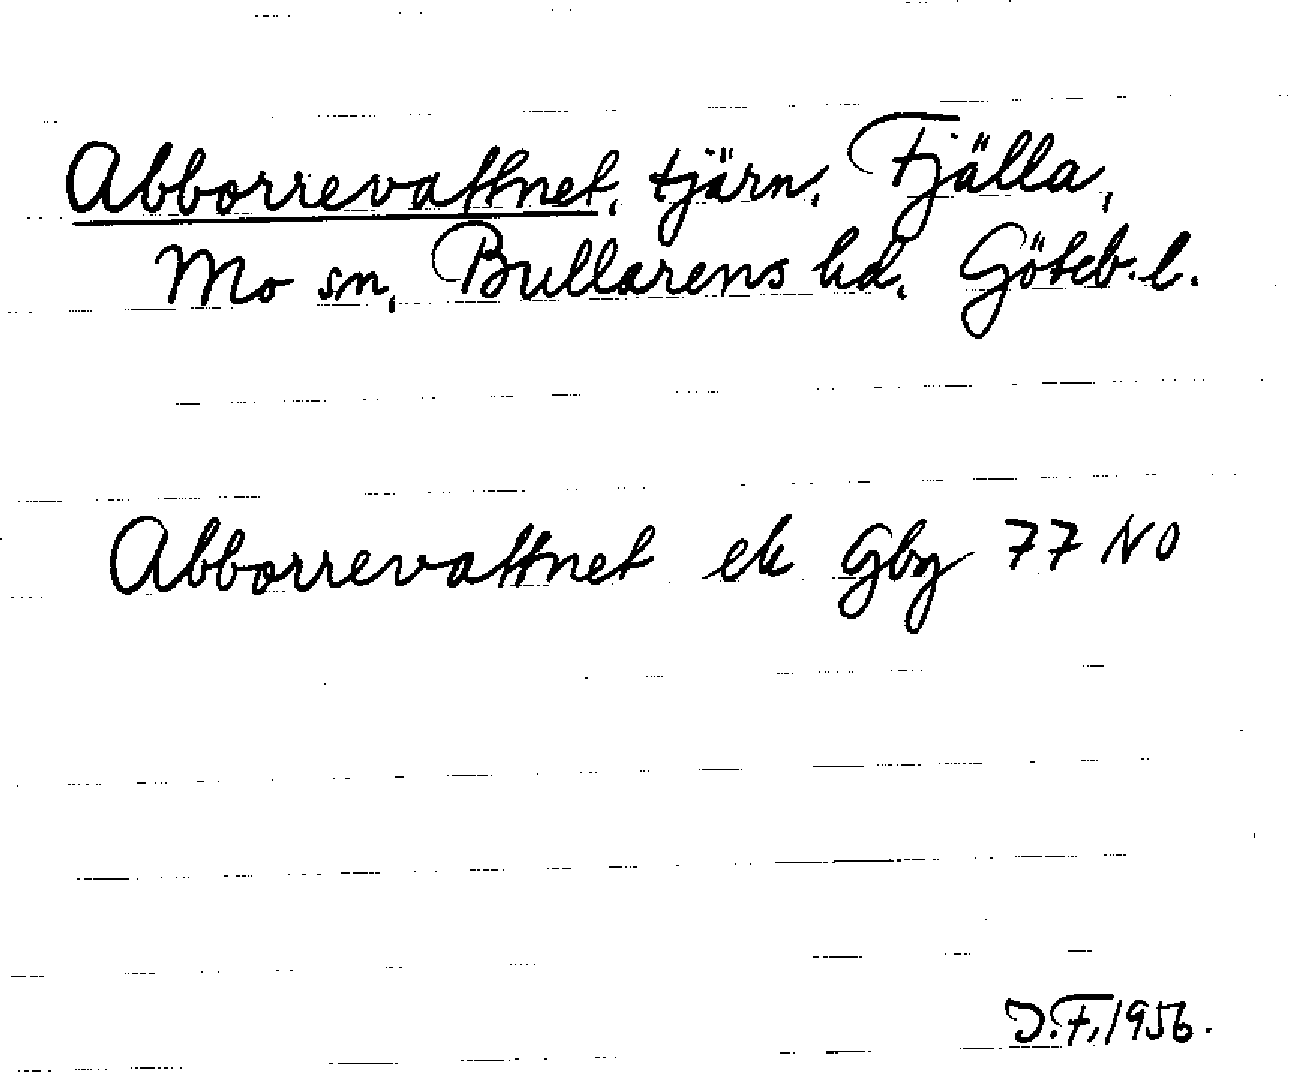 Abborrevattnet, tjärn, Fjälla,
Mo sn, Bullarens hd, Göteb. l.
Abborrevattnet ek Gby 77 NO
J.F, 1956.